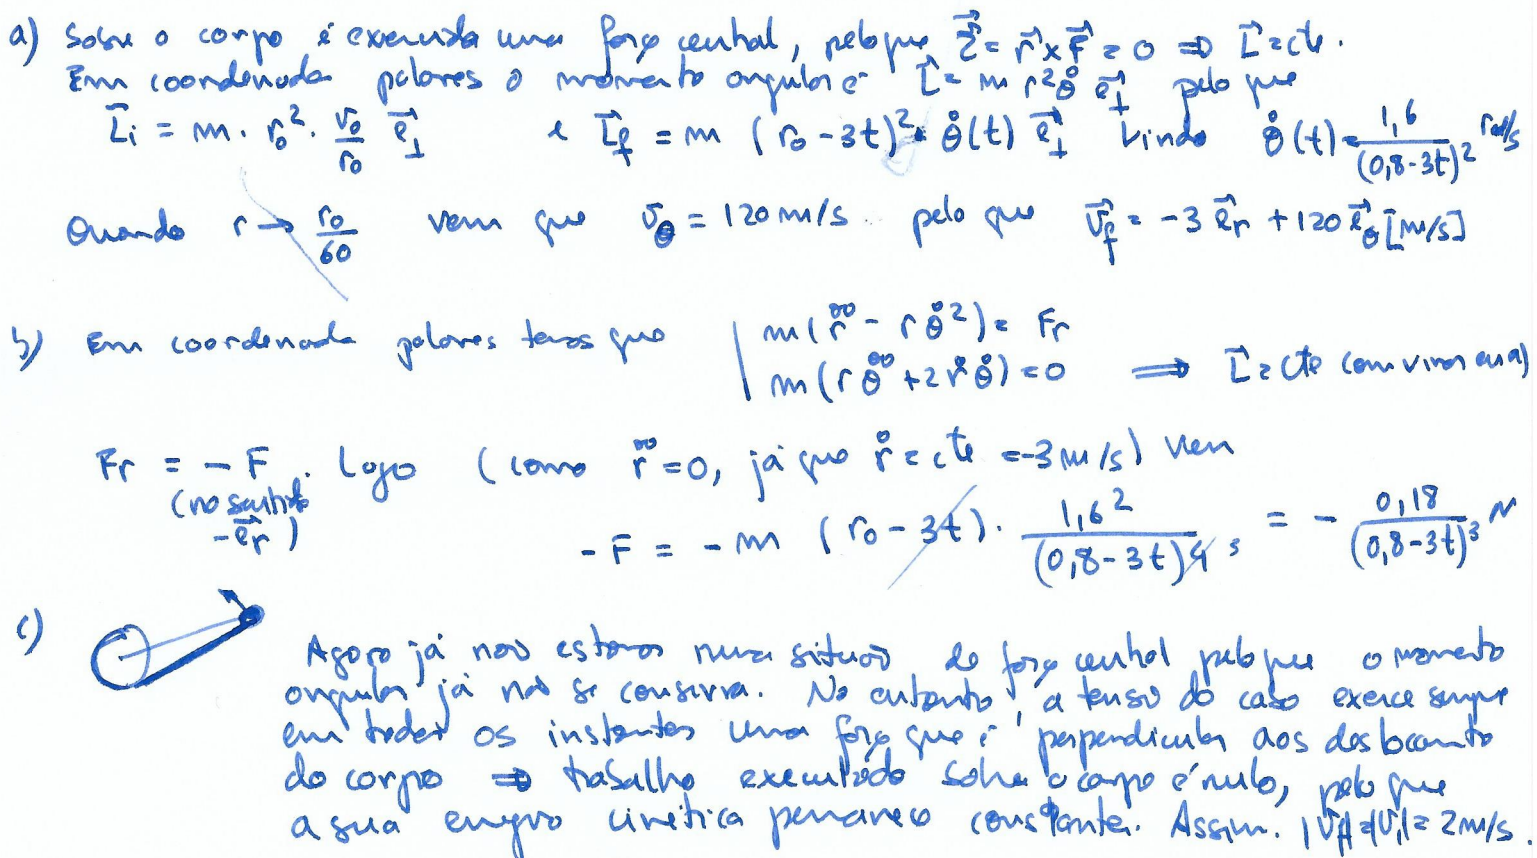 a) Sobre o corpo é exercida uma força central, pelo que $\vec{\tau} = \vec{r} \times \vec{F} = 0 \Rightarrow \vec{L} = cte.$
Em coordenadas polares o momento angular é $\vec{L} = m r^2 \dot{\theta} \vec{e}_\perp$ pelo que
$\vec{L}_i = m \cdot r_0^2 \cdot \frac{v_0}{r_0} \vec{e}_\perp$ e $\vec{L}_f = m (r_0 - 3t)^2 \cdot \dot{\theta}(t) \vec{e}_\perp$ vindo $\dot{\theta}(t) = \frac{1,6}{(0,8-3t)^2}$ rad/s
Quando $r \rightarrow \frac{r_0}{60}$ vem que $v_\theta = 120 m/s$ pelo que $\vec{v}_f = -3 \vec{e}_r + 120 \vec{e}_\theta [m/s]$
b) Em coordenadas polares temos que $m(\ddot{r} - r \dot{\theta}^2) = F_r$
$m(r \ddot{\theta} + 2 \dot{r} \dot{\theta}) = 0 \Rightarrow \vec{L} = cte$ (como vimos em a)
$F_r = -F$. Logo (como $\ddot{r} = 0$, já que $\dot{r} = cte = -3 m/s$) vem
(no sentido
$-\vec{e}_r$)
$-F = -m (r_0 - 3t) \cdot \frac{1,6^2}{(0,8-3t)^{4\,3}} = - \frac{0,18}{(0,8-3t)^3} N$
c) Agora já não estamos numa situação de força central pelo que o momento
angular já não se conserva. No entanto, a tensão do cabo exerce sempre
em todos os instantes uma força que é perpendicular aos deslocamento
do corpo ⇒ trabalho executado sobre o corpo é nulo, pelo que
a sua energia cinética permanece constante. Assim. $|\vec{v}_f| = |\vec{v}_i| = 2 m/s.$